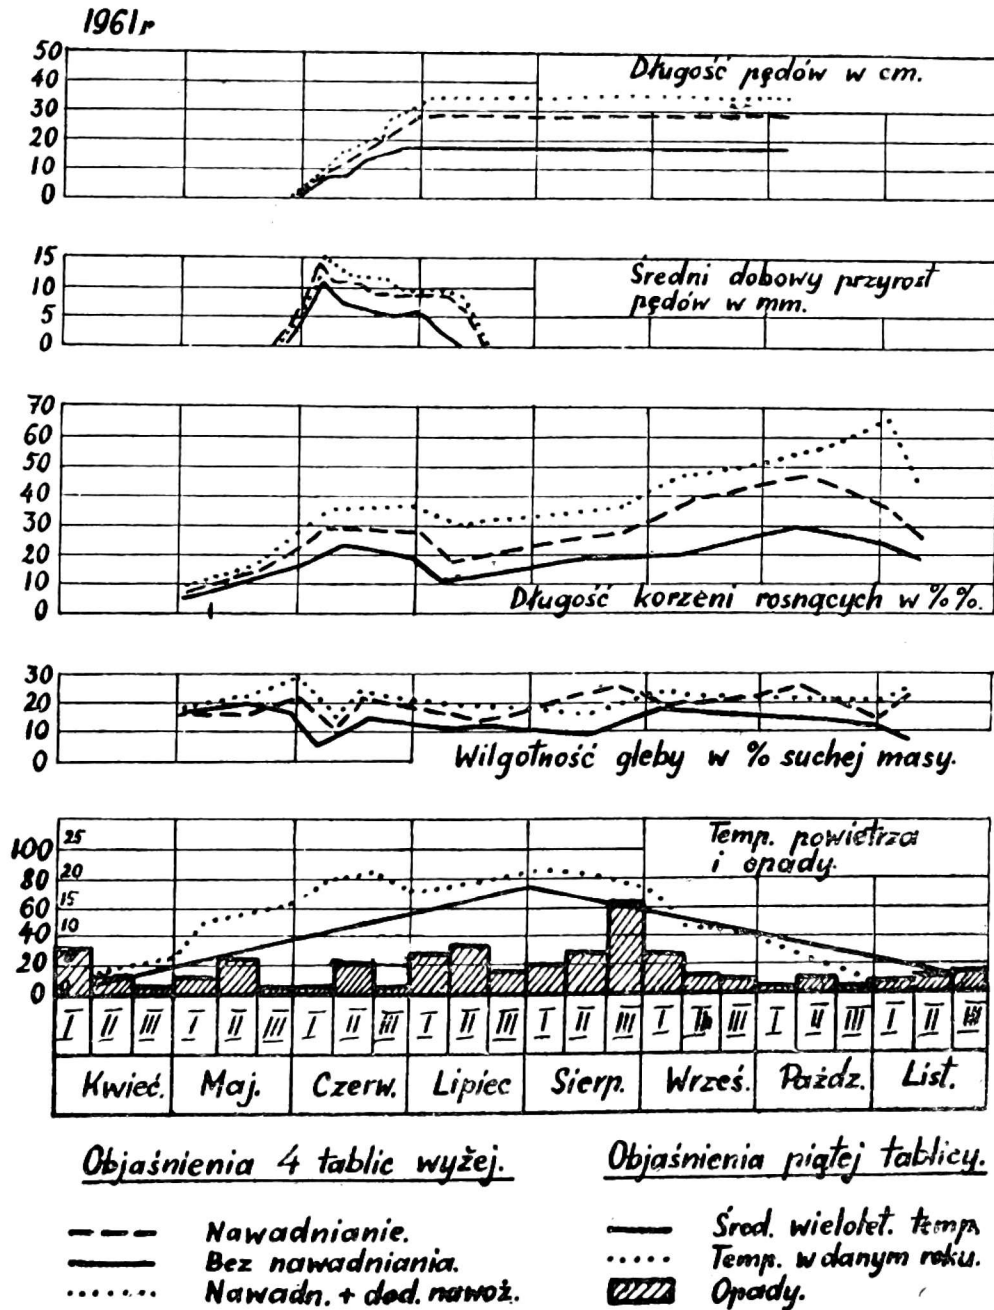 1961r
50
40
30
20
10
0
Długość pędów w cm.
15
10
5
0
Średni dobowy przyrost
pędów w mm.
70
60
50
40
30
20
10
0
Długość korzeni rosnących w %%.
30
20
10
0
Wilgotność gleby w % suchej masy.
100
80
60
40
20
0
25
20
15
10
Temp. powietrza
i opady.
I II III I II III I II III I II III I II III I II III I II III I II III
Kwieć. Maj. Czerw. Lipiec Sierp. Wrześ. Paźdz. List.
Objaśnienia 4 tablic wyżej.
Nawadnianie.
Bez nawadniania.
Nawadn. + dod. nawoż.
Objaśnienia piątej tablicy.
Środ. wielolet. temp.
Temp. w danym roku.
Opady.